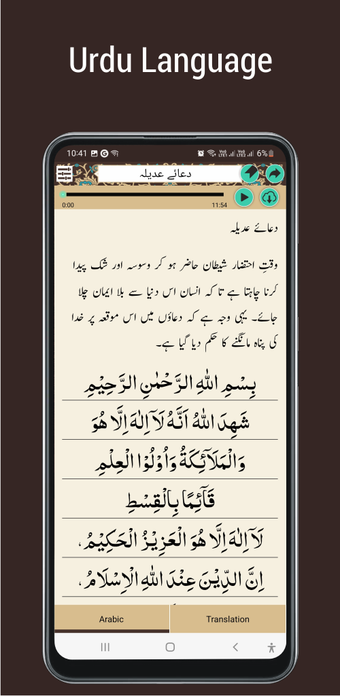 Urdu Language
10:41
6%
دعائے عدیلہ
0:00
11:54
دعائے عدیلہ
وقتِ احتضار شیطان حاضر ہو کر وسوسہ اور شک پیدا
کرنا چاہتا ہے تا کہ انسان اس دنیا سے بلا ایمان چلا
جائے۔ یہی وجہ ہے کہ دعاؤں میں اس موقعہ پر خدا
کی پناہ مانگنے کا حکم دیا گیا ہے۔
بِسْمِ اللهِ الرَّحْمٰنِ الرَّحِيْمِ
شَهِدَ اللهُ اَنَّهٗ لَاۤ اِلٰهَ اِلَّا هُوَ
وَالْمَلَآئِكَةُ وَاُوْلُوا الْعِلْمِ
قَآئِمًا بِالْقِسْطِ
لَاۤ اِلٰهَ اِلَّا هُوَ الْعَزِيْزُ الْحَكِيْمُ،
اِنَّ الدِّيْنَ عِنْدَ اللهِ الْاِسْلَامُ،
Arabic
Translation